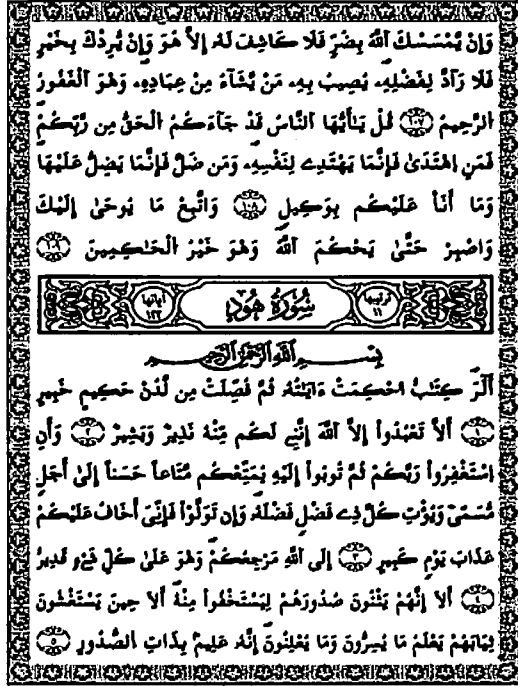 وَإِنْ يَّمْسَسْكَ اَ۬للَّهُ بِضُرٍّ فَلَا كَاشِفَ لَهُۥ إِلَّا هُوَ وَإِنْ يُّرِدْكَ بِخَيْرٍ
فَلَا رَآدَّ لِفَضْلِهِۦ يُصِيبُ بِهِۦ مَنْ يَّشَآءُ مِنْ عِبَادِهِۦ وَهُوَ اَ۬لْغَفُورُ
اُ۬لرَّحِيمُ ١٠٧ قُلْ يَٰٓأَيُّهَا اَ۬لنَّاسُ قَدْ جَآءَكُمُ الْحَقُّ مِن رَّبِّكُمْ
فَمَنِ اِ۪هْتَدَىٰ فَإِنَّمَا يَهْتَدِے لِنَفْسِهِۦ وَمَن ضَلَّ فَإِنَّمَا يَضِلُّ عَلَيْهَا
وَمَا أَنَا۠ عَلَيْكُم بِوَكِيلٍ ١٠٨ وَاتَّبِعْ مَا يُوحَىٰ إِلَيْكَ
وَاصْبِرْ حَتَّىٰ يَحْكُمَ اَ۬للَّهُ وَهُوَ خَيْرُ الْحَٰكِمِينَ ١٠٩
ترتيبها ١١ سُورَةُ هُودٍ آياتها ١٢٣
بِسْمِ اللَّهِ الرَّحْمَٰنِ الرَّحِيمِ
أَلَٓرَ كِتَٰبٌ اُ۟حْكِمَتْ ءَايَٰتُهُۥ ثُمَّ فُصِّلَتْ مِن لَّدُنْ حَكِيمٍ خَبِيرٍ
١ أَلَّا تَعْبُدُوٓاْ إِلَّا اَ۬للَّهَ إِنَّنِے لَكُم مِّنْهُ نَذِيرٌ وَبَشِيرٌ ٢ وَأَنِ
اِ۪سْتَغْفِرُواْ رَبَّكُمْ ثُمَّ تُوبُوٓاْ إِلَيْهِ يُمَتِّعْكُم مَّتَٰعاً حَسَناً إِلَىٰٓ أَجَلٍ
مُّسَمًّى وَيُؤْتِ كُلَّ ذِے فَضْلٍ فَضْلَهُۥ وَإِن تَوَلَّوْاْ فَإِنِّيَ أَخَافُ عَلَيْكُمْ
عَذَابَ يَوْمٍ كَبِيرٍ ٣ إِلَى اَ۬للَّهِ مَرْجِعُكُمْ وَهُوَ عَلَىٰ كُلِّ شَےْءٍ قَدِيرٌ
٤ أَلَآ إِنَّهُمْ يَثْنُونَ صُدُورَهُمْ لِيَسْتَخْفُواْ مِنْهُ أَلَا حِينَ يَسْتَغْشُونَ
ثِيَابَهُمْ يَعْلَمُ مَا يُسِرُّونَ وَمَا يُعْلِنُونَ إِنَّهُۥ عَلِيمٌ بِذَاتِ اِ۬لصُّدُورِ ٥